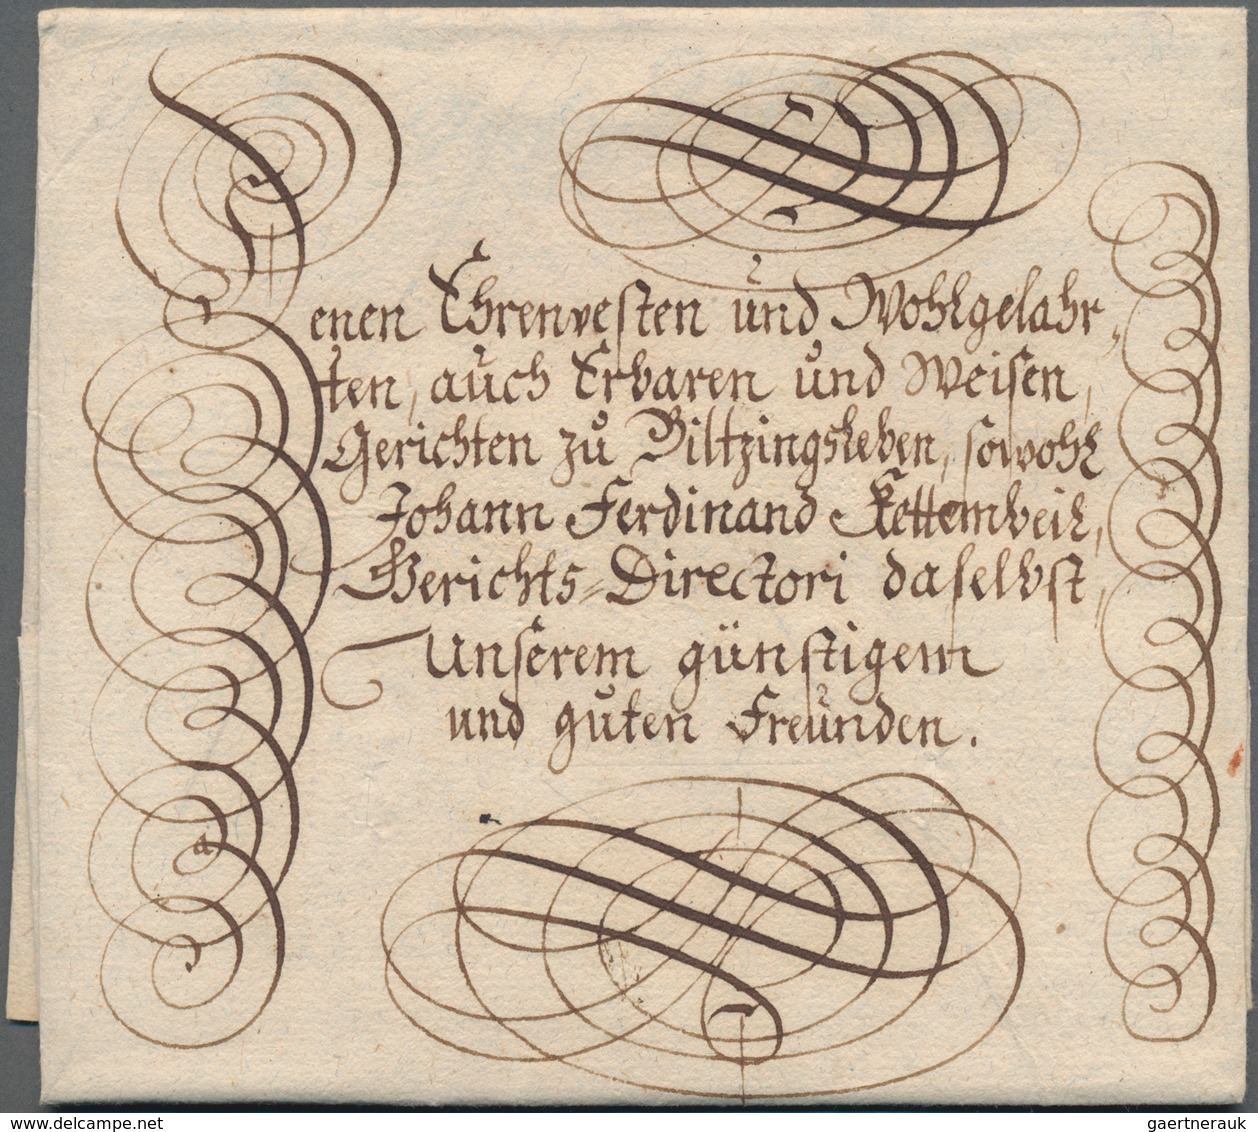 Denen Ehrenvesten und Wohlgelahr-
ten, auch Erbaren und Weisen,
Gerichten zu Biltzingsleben, sowohl
Johann Ferdinand Kettembeil,
Gerichts=Directori daselbst,
Unserem günstigem
und guten Freunden.
www.delcampe.net
gaertnerauk